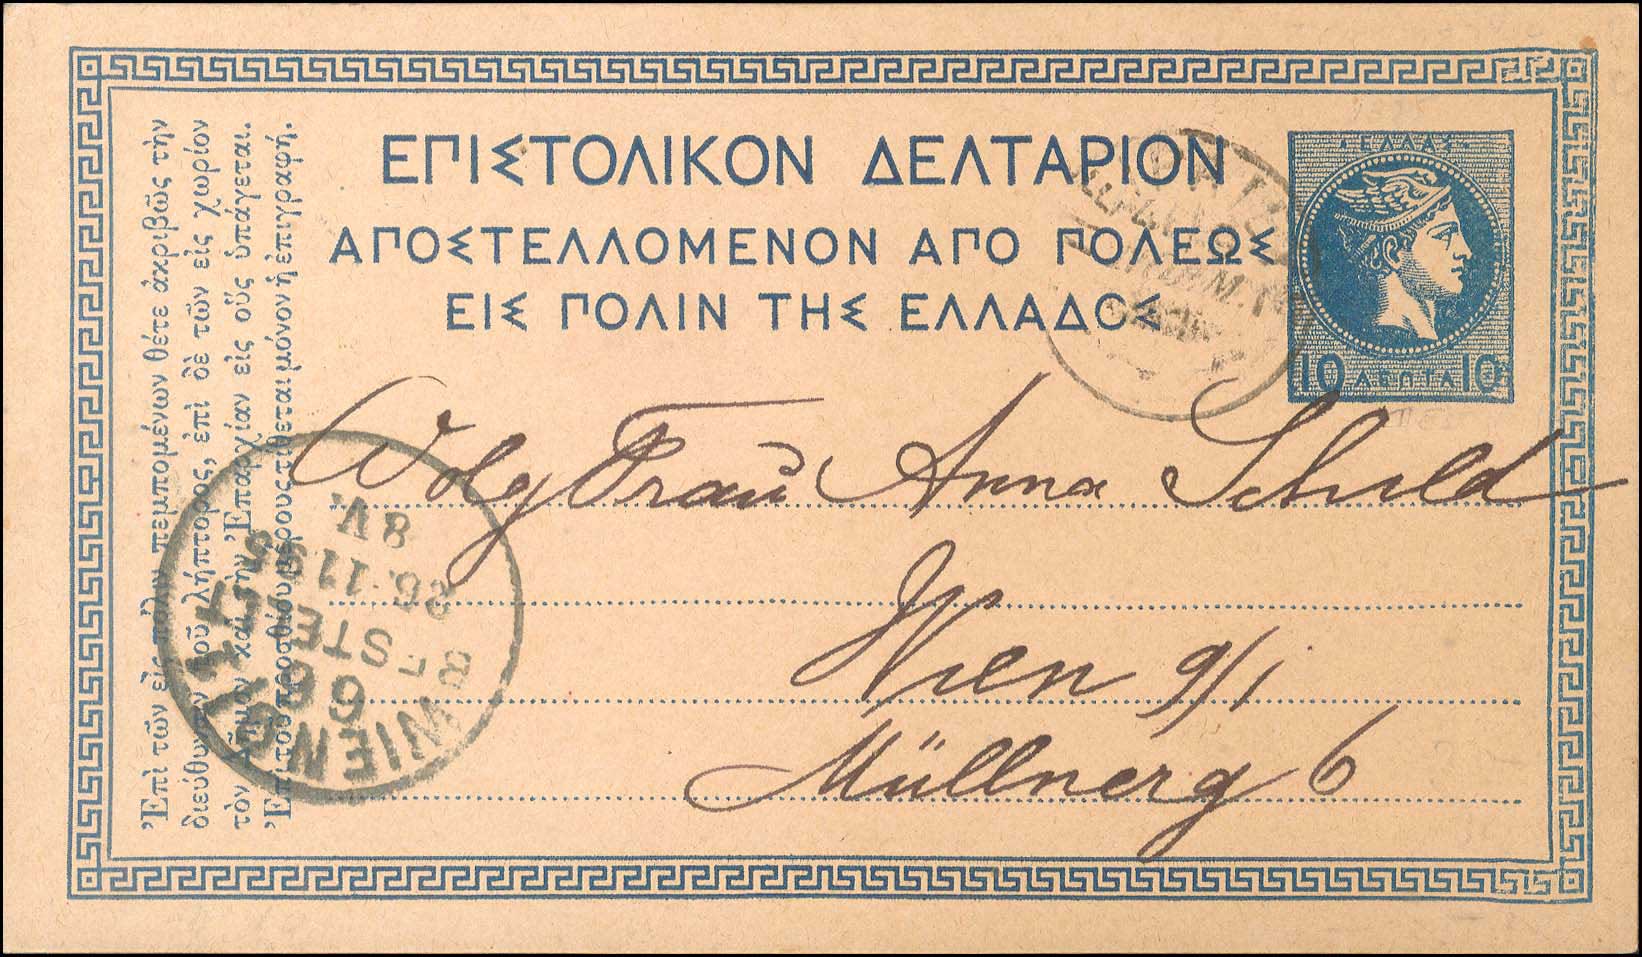 ΕΠΙΣΤΟΛΙΚΟΝ ΔΕΛΤΑΡΙΟΝ
ΑΠΟΣΤΕΛΛΟΜΕΝΟΝ ΑΠΟ ΠΟΛΕΩΣ
ΕΙΣ ΠΟΛΙΝ ΤΗΣ ΕΛΛΑΔΟΣ
ΕΛΛΑΣ
10 ΛΕΠΤΑ 10
Ἐπὶ τῶν εἰς πόλιν πεμπομένων θέτε ἀκριβῶς τὴν
διεύθυνσιν τοῦ λήπτορος, ἐπὶ δὲ τῶν εἰς χωρίον
τὸν Δῆμον καὶ τὴν Ἐπαρχίαν εἰς οὓς ὑπάγεται.
Ἐπὶ τοῦ προσθίου μέρους τίθεται μόνον ἡ ἐπιγραφή.
Frau Anna Schuld
Wien 9/1
Müllnerg 6
WIEN 9/1
66
BESTELLT
8.V